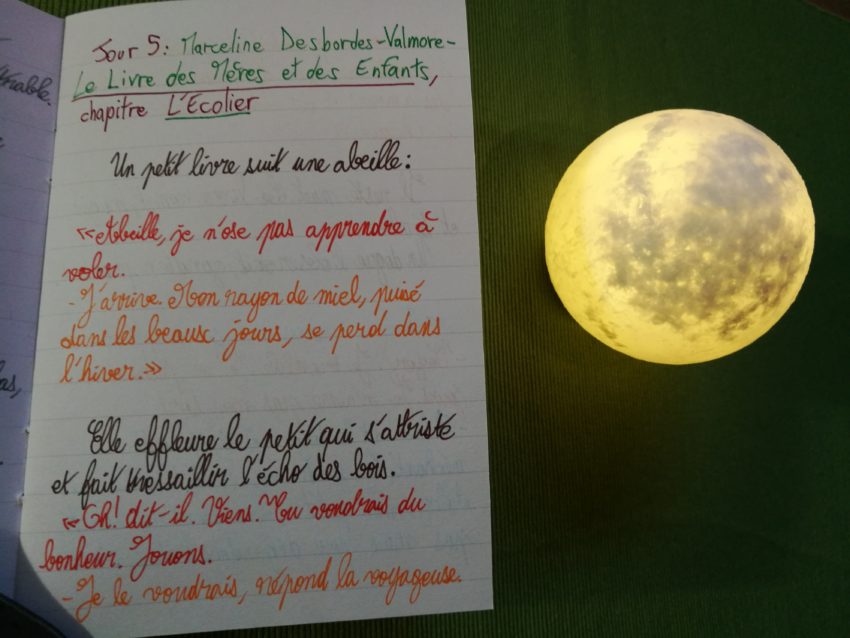 Jour 5: Marceline Desbordes-Valmore-
Le Livre des Mères et des Enfants,
chapitre L'Ecolier
Un petit livre suit une abeille:
«Abeille, je n'ose pas apprendre à
voler.
- J'arrive. Mon rayon de miel, puisé
dans les beaux jours, se perd dans
l'hiver.»
Elle effleure le petit qui s'attriste
et fait tressaillir l'écho des bois.
«Oh! dit-il. Viens. Tu voudrais du
bonheur. Jouons.
- Je le voudrais, répond la voyageuse.